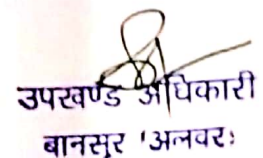 उपखण्ड अधिकारी
बानसूर 'अलवर: